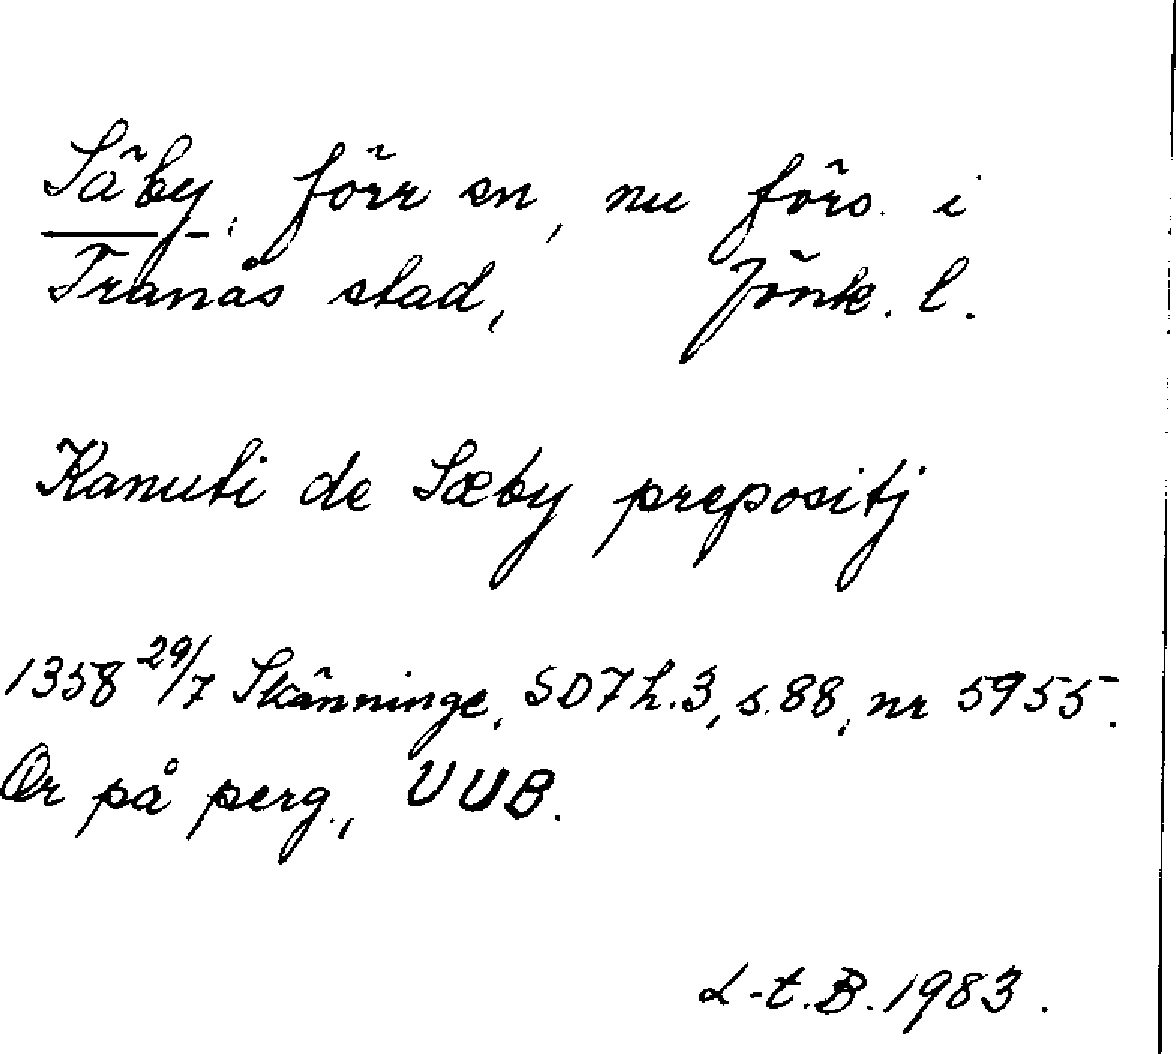 Säby, förr sn, nu förs. i
Tranås stad, Jönk. l.
Kanuti de Sæby prepositj
1358 29/7 Skänninge, SD7 h.3, s.88, nr 5955.
Or på perg., UUB.
L-t.B. 1983.